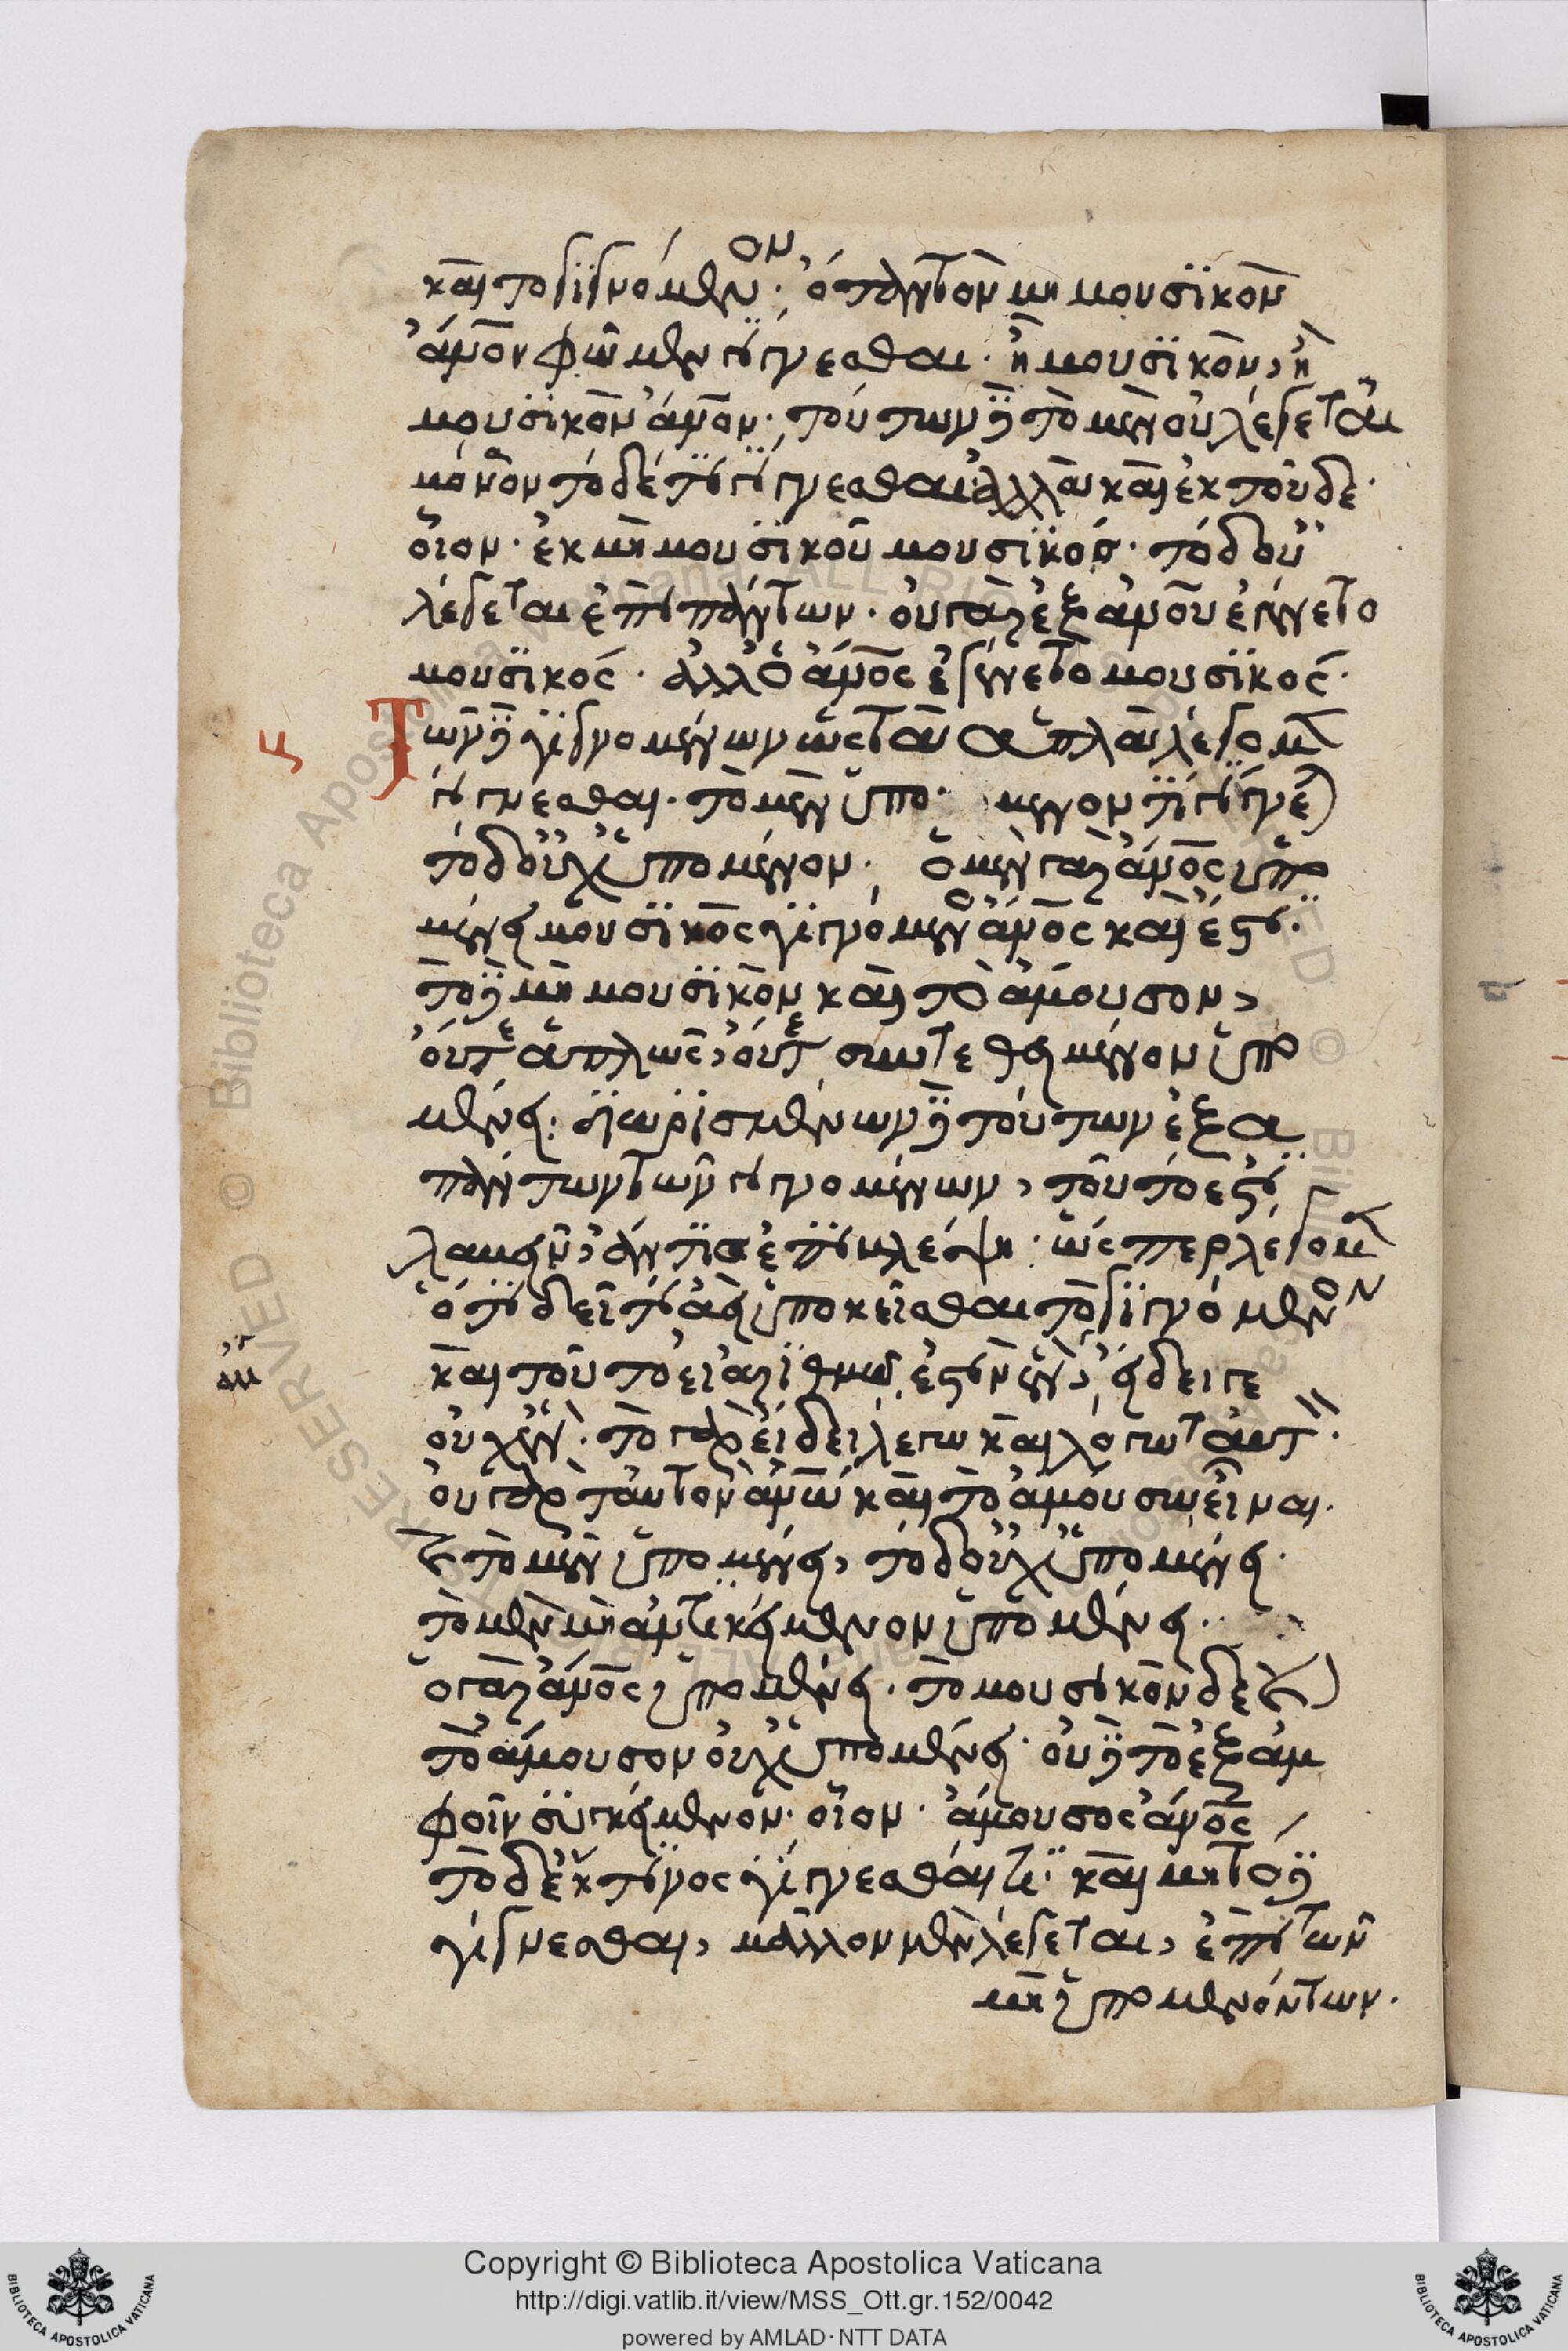 καὶ τὸ γιγνόμενον· ὅταν τὸν μὴ μουσικὸν
ἄνον φῶμεν γίγνεσθαι· ἢ μουσικὸν, ἢ
μουσικὸν ἄνον· τούτων δὲ τὸ μὲν οὐ λέγεται
μόνον τόδέ τι γίγνεσθαι· ἀλλὰ καὶ ἐκ τοῦδε·
οἷον· ἐκ μὴ μουσικοῦ μουσικός· τὸ δ οὐ
λέγεται ἐπὶ πάντων· οὐ γὰρ ἐξ ἀνου ἐγένετο
μουσικός· ἀλλ ὁ ἄνος ἐγένετο μουσικός·
Τῶν δὲ γιγνομένων ὡς τὰ ἁπλᾶ λέγομεν
γίγνεσθαι· τὸ μὲν ὑπομένον τι γίγνε
τὸ δ οὐχ ὑπομένον· ὁ μὲν γὰρ ἄνος ὑπο
μένει μουσικὸς γιγνόμενος ἄνος καὶ ἔστι·
τὸ δὲ μὴ μουσικὸν καὶ τὸ ἄμουσον,
οὔτε ἁπλῶς, οὔτε συντεθειμένον ὑπο
μένει· διωρισμένων δὲ τούτων ἐξ ἁ
πάντων τῶν γιγνομένων, τοῦτο ἔστι
λαβεῖν, ἄν τις ἐπιβλέψῃ· ὥσπερ λέγομεν
ὅτι δεῖ τι ἀεὶ ὑποκεῖσθαι τὸ γιγνόμενον
καὶ τοῦτο εἰ ἀριθμῷ ἐστιν ἕν, εἴδει γε
οὐχ ἕν· τὸ γὰρ εἴδει λέγω καὶ λόγω ταυτ·
οὐ γὰρ ταὐτὸν ἀνω καὶ τὸ ἀμούσω εἶναι·
καὶ τὸ μὲν ὑπομένει, τὸ δ οὐχ ὑπομένει·
τὸ μὲν μὴ ἀντικείμενον ὑπομένει·
ὁ γὰρ ἄνος ὑπομένει· τὸ μουσικὸν δὲ καὶ
τὸ ἄμουσον οὐχ ὑπομένει· οὐδὲ τὸ ἐξ ἀμ
φοῖν συγκείμενον· οἷον· ἄμουσος ἄνος
τὸ δ ἔκ τινος γίγνεσθαί τι· καὶ μὴ τόδε
γίγνεσθαι, μᾶλλον μὲν λέγεται, ἐπὶ τῶν
μὴ ὑπομενόντων.
Copyright © Biblioteca Apostolica Vaticana
http://digi.vatlib.it/view/MSS_Ott.gr.152/0042
powered by AMLAD·NTT DATA